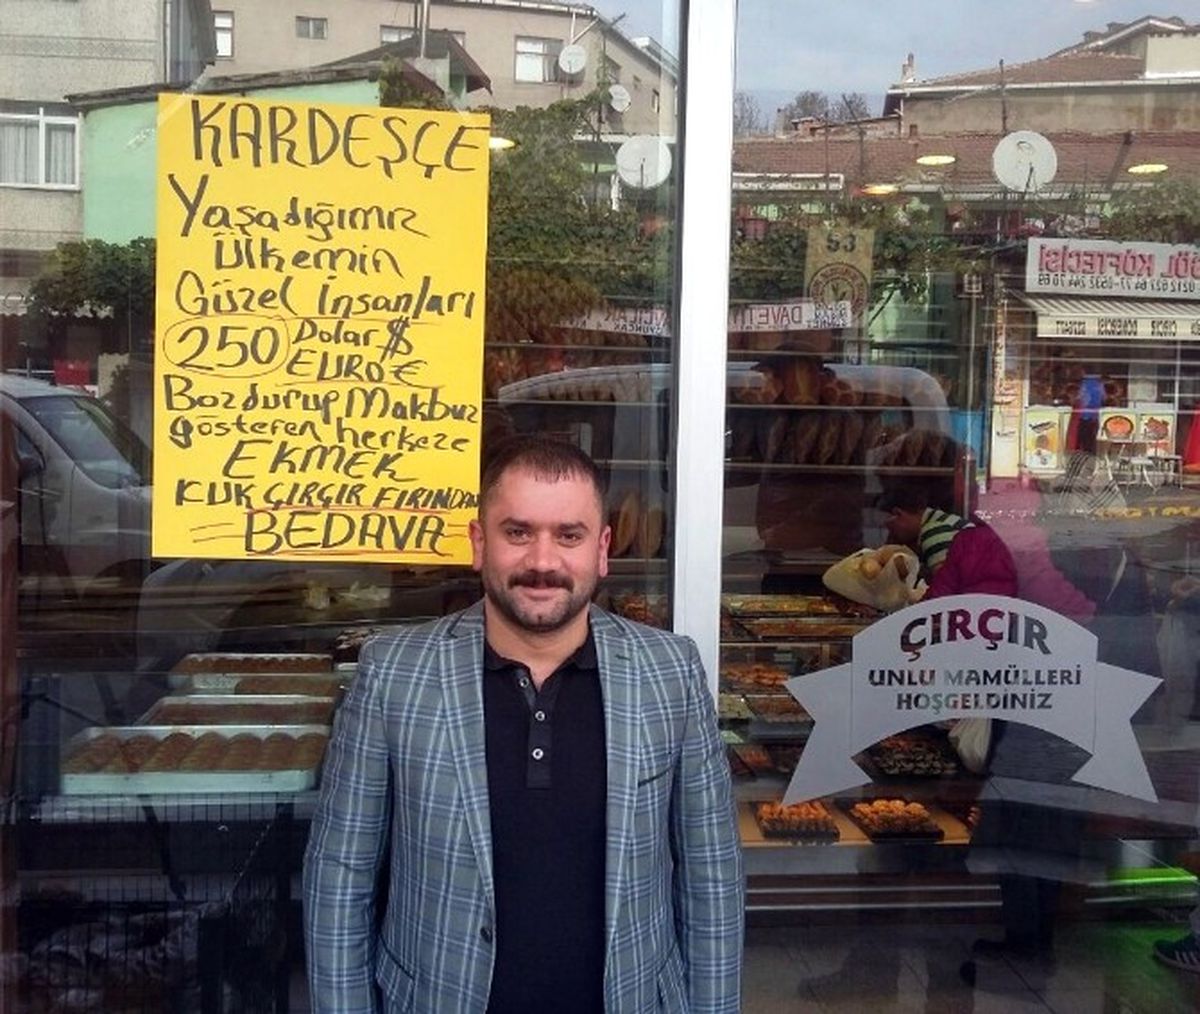 KARDEŞÇE
Yaşadığımız
Ülkemin
Güzel İnsanları
250 Dolar $
EURO €
Bozdurup Makbuz
gösteren herkeze
EKMEK
KUK ÇIRÇIR FIRINDAN
BEDAVA
53
GÖL KÖFTECİSİ
DAVETİ
ÇIRÇIR
UNLU MAMÜLLERİ
HOŞGELDİNİZ